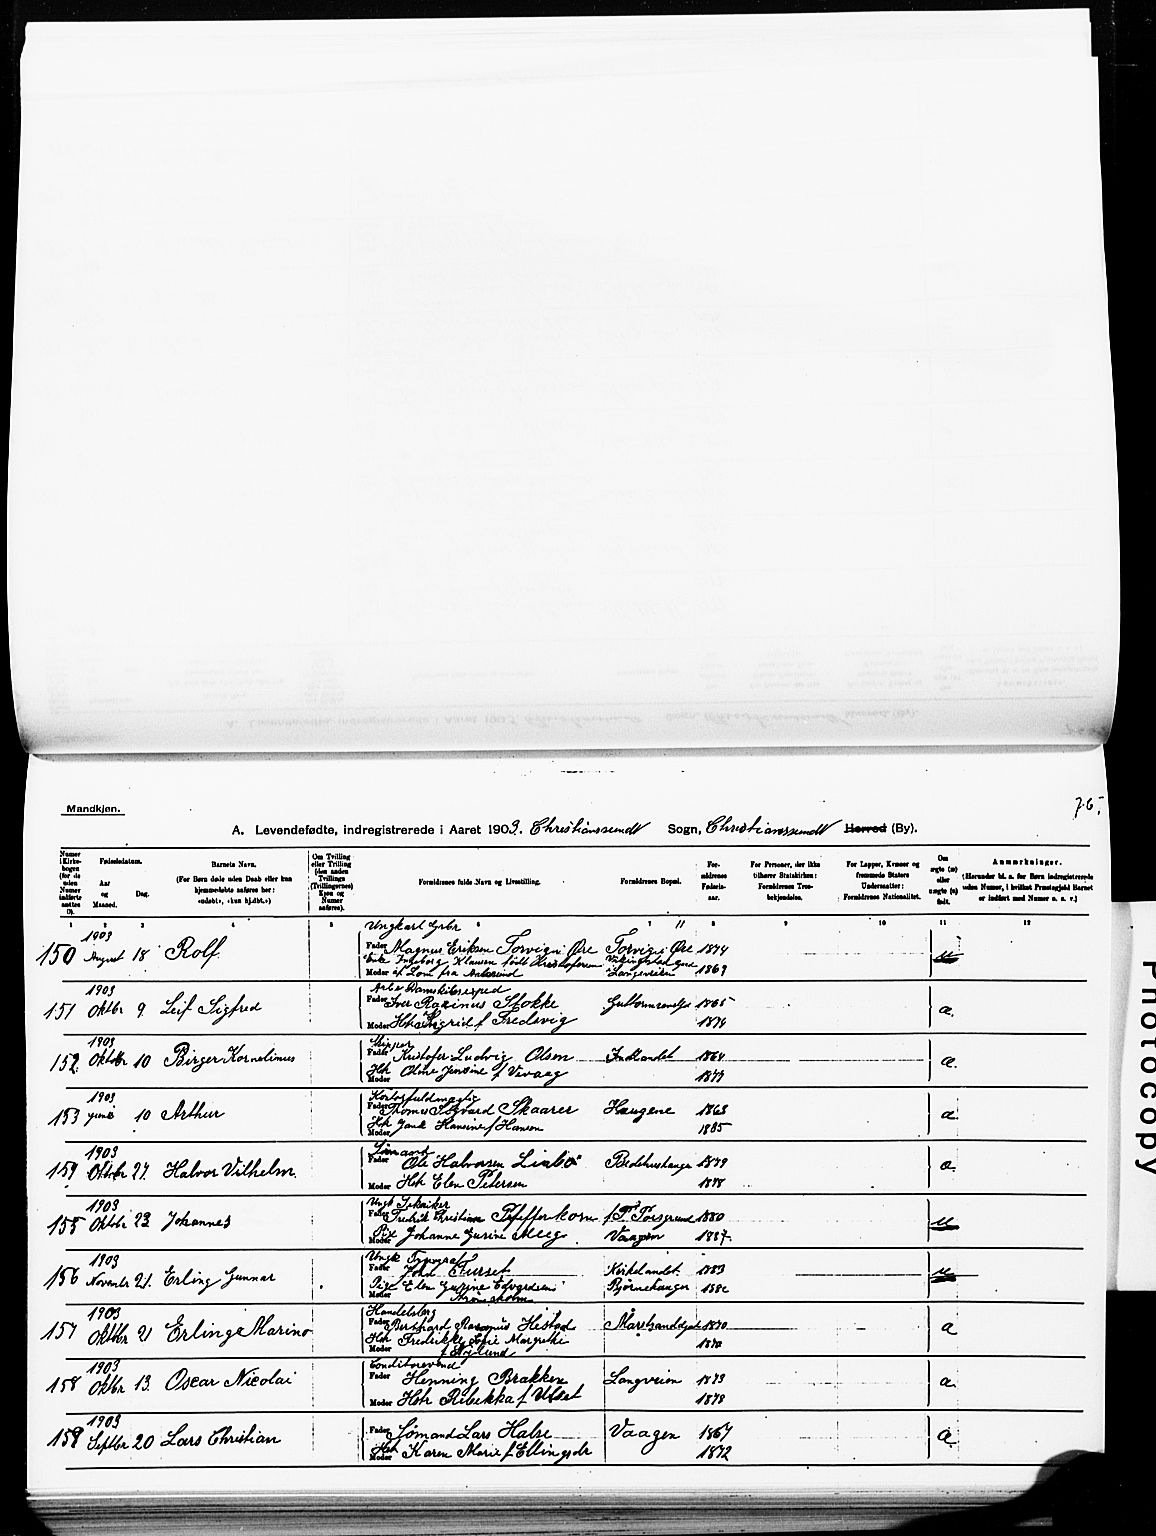 Mandkjøn.
76.
A. Levendefødte, indregistrerede i Aaret 1903. Christianssundt Sogn, Christianssundt Herred (By).
Numer i Kirkebogen (for de uden Numer indførte anføres 0).
Fødselsdatum.
Aar og Maaned.
Dag.
Barnets Navn.
(For Børn døde uden Daab eller kun hjemmedøbte anføres her: «udøbt», «kun hj.dbt.»)
Om Tvilling eller Trilling (den anden Tvillings (Trillingernes) Kjøn og Numer anføres).
Forældrenes fulde Navn og Livsstilling.
Forældrenes Bopæl.
Forældrenes Fødselsaar.
For Personer, der ikke tilhører Statskirken: Forældrenes Trosbekjendelse.
For Lapper, Kvæner og fremmede Staters Undersaatter: Forældrenes Nationalitet.
Om ægte (æ) eller uægte (u) født.
Anmærkninger.
(Herunder bl. a. for Børn indregistrerede uden Numer, i hvilket Præstegjeld Barnet er indført med Numer o. s. v.)
1 2 3 4 5 6 7 8 9 10 11 12
Ungkarl Grbr
150 1903 August 18 Rolf
Fader Magnus Eriksen Torvig i Øre Torvig i Øre 1874
Enke Ingeborg Klausen født Kristofersen
Moder af Lom fra Aalesund Langeveien 1869
u
151 1903 Oktbr 9 Leif Sigfred
Fader Iver Rasinus Stokke 1865
Moder Hstr Sigrid f Fredsvig 1874
æ.
152. 1903 Oktbr 10 Birger Kornelinus
Skipper
Fader Kristofer Ludvig Olsen Indlandet 1864
Hstr Oline Jensine f Vevaag
Moder 1877
æ.
153 1903 Juni 10 Arthur
Kontorfuldmægtig
Fader Thomas Sigvard Skaarer Haugene 1863
Hstr Hansine f Hansen
Moder 1885
æ.
154 1903 Oktobr 27. Halvor Vilhelm.
Sømand
Fader Ole Halvorsen Liabø 1879
Moder Hstr Elen Petersen 1878
æ.
155 1903 Oktbr 23 Johannes
Ungk Tekniker
Fader Fredrik Christian Pfefferkorn f. T. Porsgrund 1880
Pige Johanne Gurine Meeg Vaagen 1887.
Moder
u
156 1903 Novembr 21. Erling Gunnar
Ungk Typograf
Fader John Furset Kirkelandet. 1883
Pige Elen Gurine Edvardsen Bjørnehaugen
Moder
u
157 1903 Oktbr 21 Erling Marino
Handelsbg
Fader Bernhard Rasmus Hestad 1870
Hstr Fredrikke Sofie Margrethe
Moder
æ
158 1903 Oktbr 13. Oscar Nicolai
Conditorsvend
Fader Henning Brakken Langveien 1873
Moder Hstr Rebekka f. Utset 1878
æ.
159 1903 Septbr 20 Lars Christian
Fader Sømand Lars Halse Vaagen 1867
Hstr Karen Marie f. Ellingsdr
Moder 1872
æ.
Photocopy